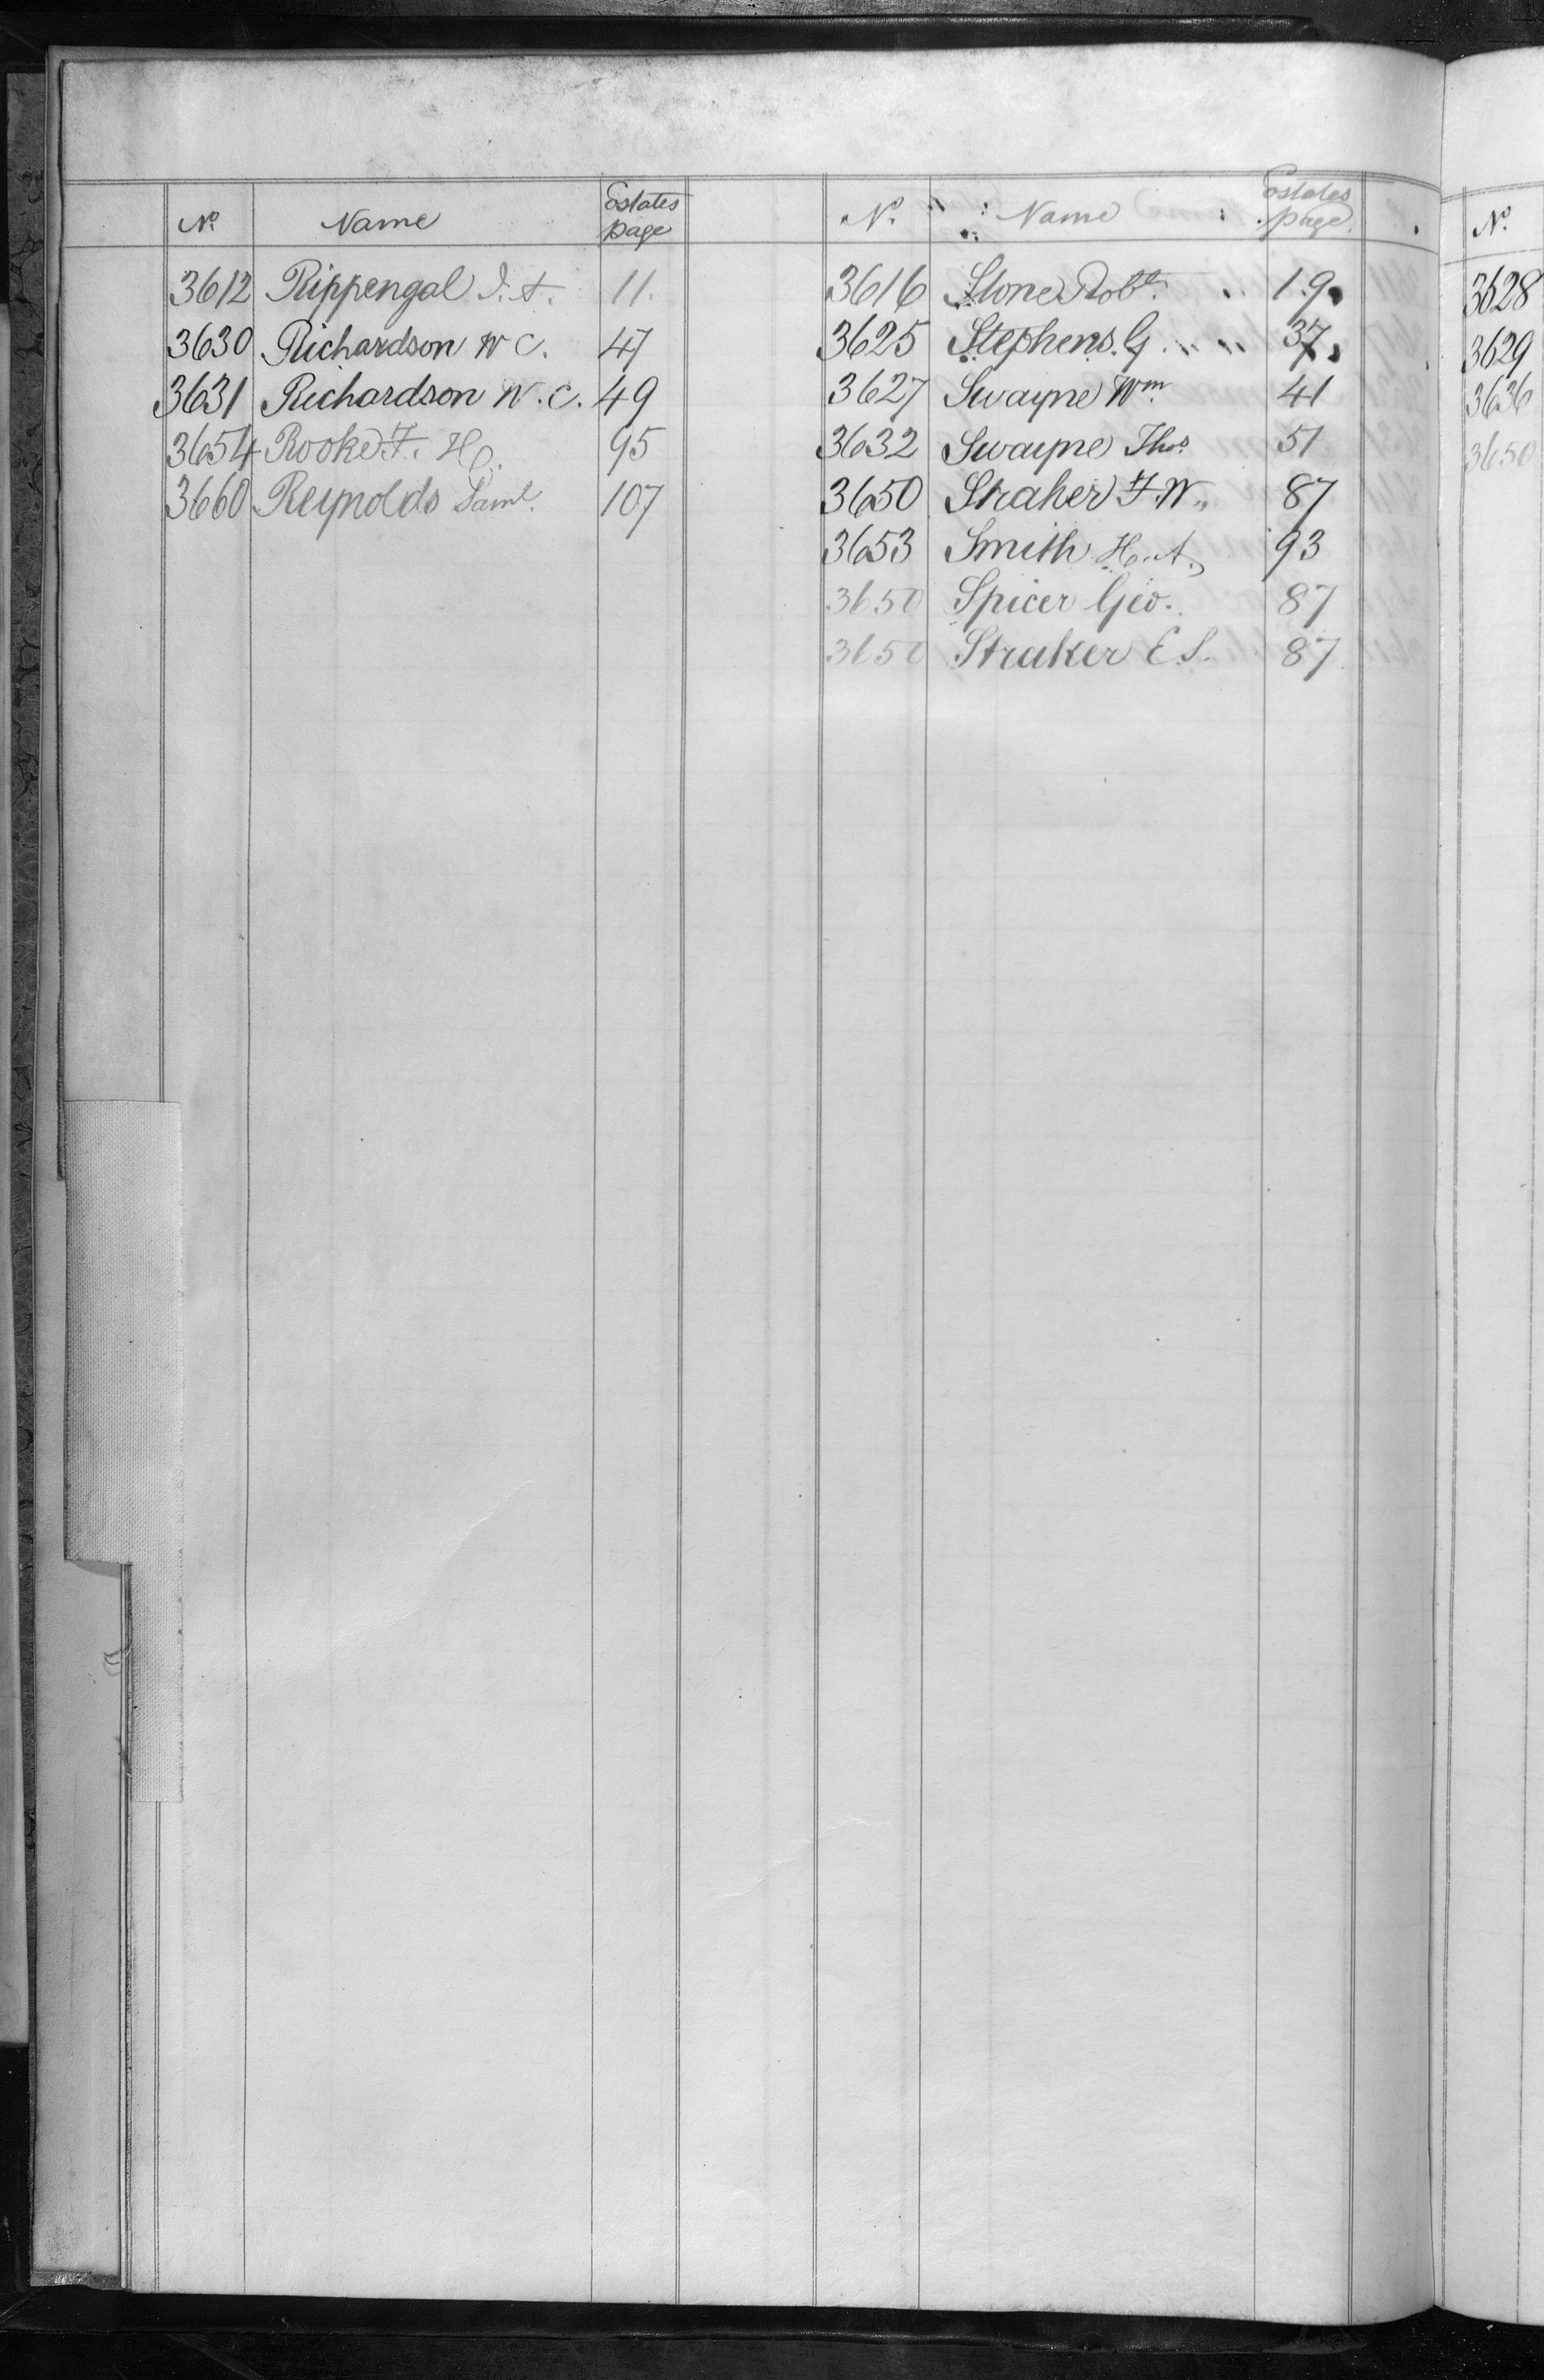 No. Name Estates page
3612 Rippengal J. A. 11.
3630 Richardson W C. 47
3631 Richardson W. C. 49
3654 Rooke F. H. 95
3660 Reynolds Saml. 107
No. Name Estates page
3616 Stone Robt. 19
3625 Stephens. G. 37
3627 Swayne Wm. 41
3632 Swayne Thos. 51
3650 Straker F. W. 87
3653 Smith H. A. 93
3650 Spicer Geo. 87
3650 Straker E. S. 87
No.
3628
3629
3636
3650